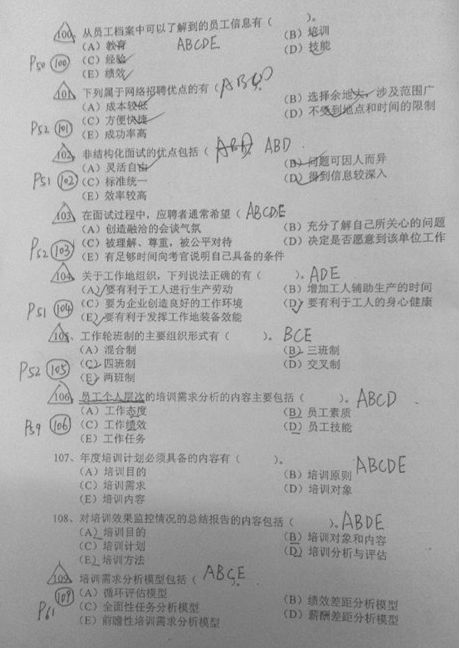 100、从员工档案中可以了解到的员工信息有（ ）。
（A）教育 ABCDE （B）培训
P50 100 （C）经验 （D）技能
（E）绩效
101、下列属于网络招聘优点的有（ ABCD ）。
（A）成本较低 （B）选择余地大，涉及范围广
P52 101 （C）方便快捷 （D）不受到地点和时间的限制
（E）成功率高
102、非结构化面试的优点包括（ ABD ）。 ABD
（A）灵活自由 （B）问题可因人而异
P51 102 （C）标准统一 （D）得到信息较深入
（E）效率较高
103、在面试过程中，应聘者通常希望（ ABCDE
（A）创造融洽的会谈气氛 （B）充分了解自己所关心的问题
P52 103 （C）被理解、尊重，被公平对待 （D）决定是否愿意到该单位工作
（E）有足够时间向考官说明自己具备的条件
104、关于工作地组织，下列说法正确的有（ ）。 ADE
（A）要有利于工人进行生产劳动 （B）增加工人辅助生产的时间
P51 104 （C）要为企业创造良好的工作环境 （D）要有利于工人的身心健康
（E）要有利于发挥工作地装备效能
105、工作轮班制的主要组织形式有（ ）。 BCE
（A）混合制 （B）三班制
P52 105 （C）四班制 （D）交叉制
（E）两班制
106、员工个人层次的培训需求分析的内容主要包括（ ）。 ABCD
（A）工作态度 （B）员工素质
P59 106 （C）工作绩效 （D）员工技能
（E）工作任务
107、年度培训计划必须具备的内容有（ ）。 ABCDE
（A）培训目的 （B）培训原则
（C）培训需求 （D）培训对象
（E）培训内容
108、对培训效果监控情况的总结报告的内容包括（ ）。 ABDE
（A）培训目的 （B）培训对象和内容
（C）培训计划 （D）培训分析与评估
（E）培训方法
109、培训需求分析模型包括（ ABCE ）。
109 （A）循环评估模型 （B）绩效差距分析模型
P61 （C）全面性任务分析模型 （D）薪酬差距分析模型
（E）前瞻性培训需求分析模型